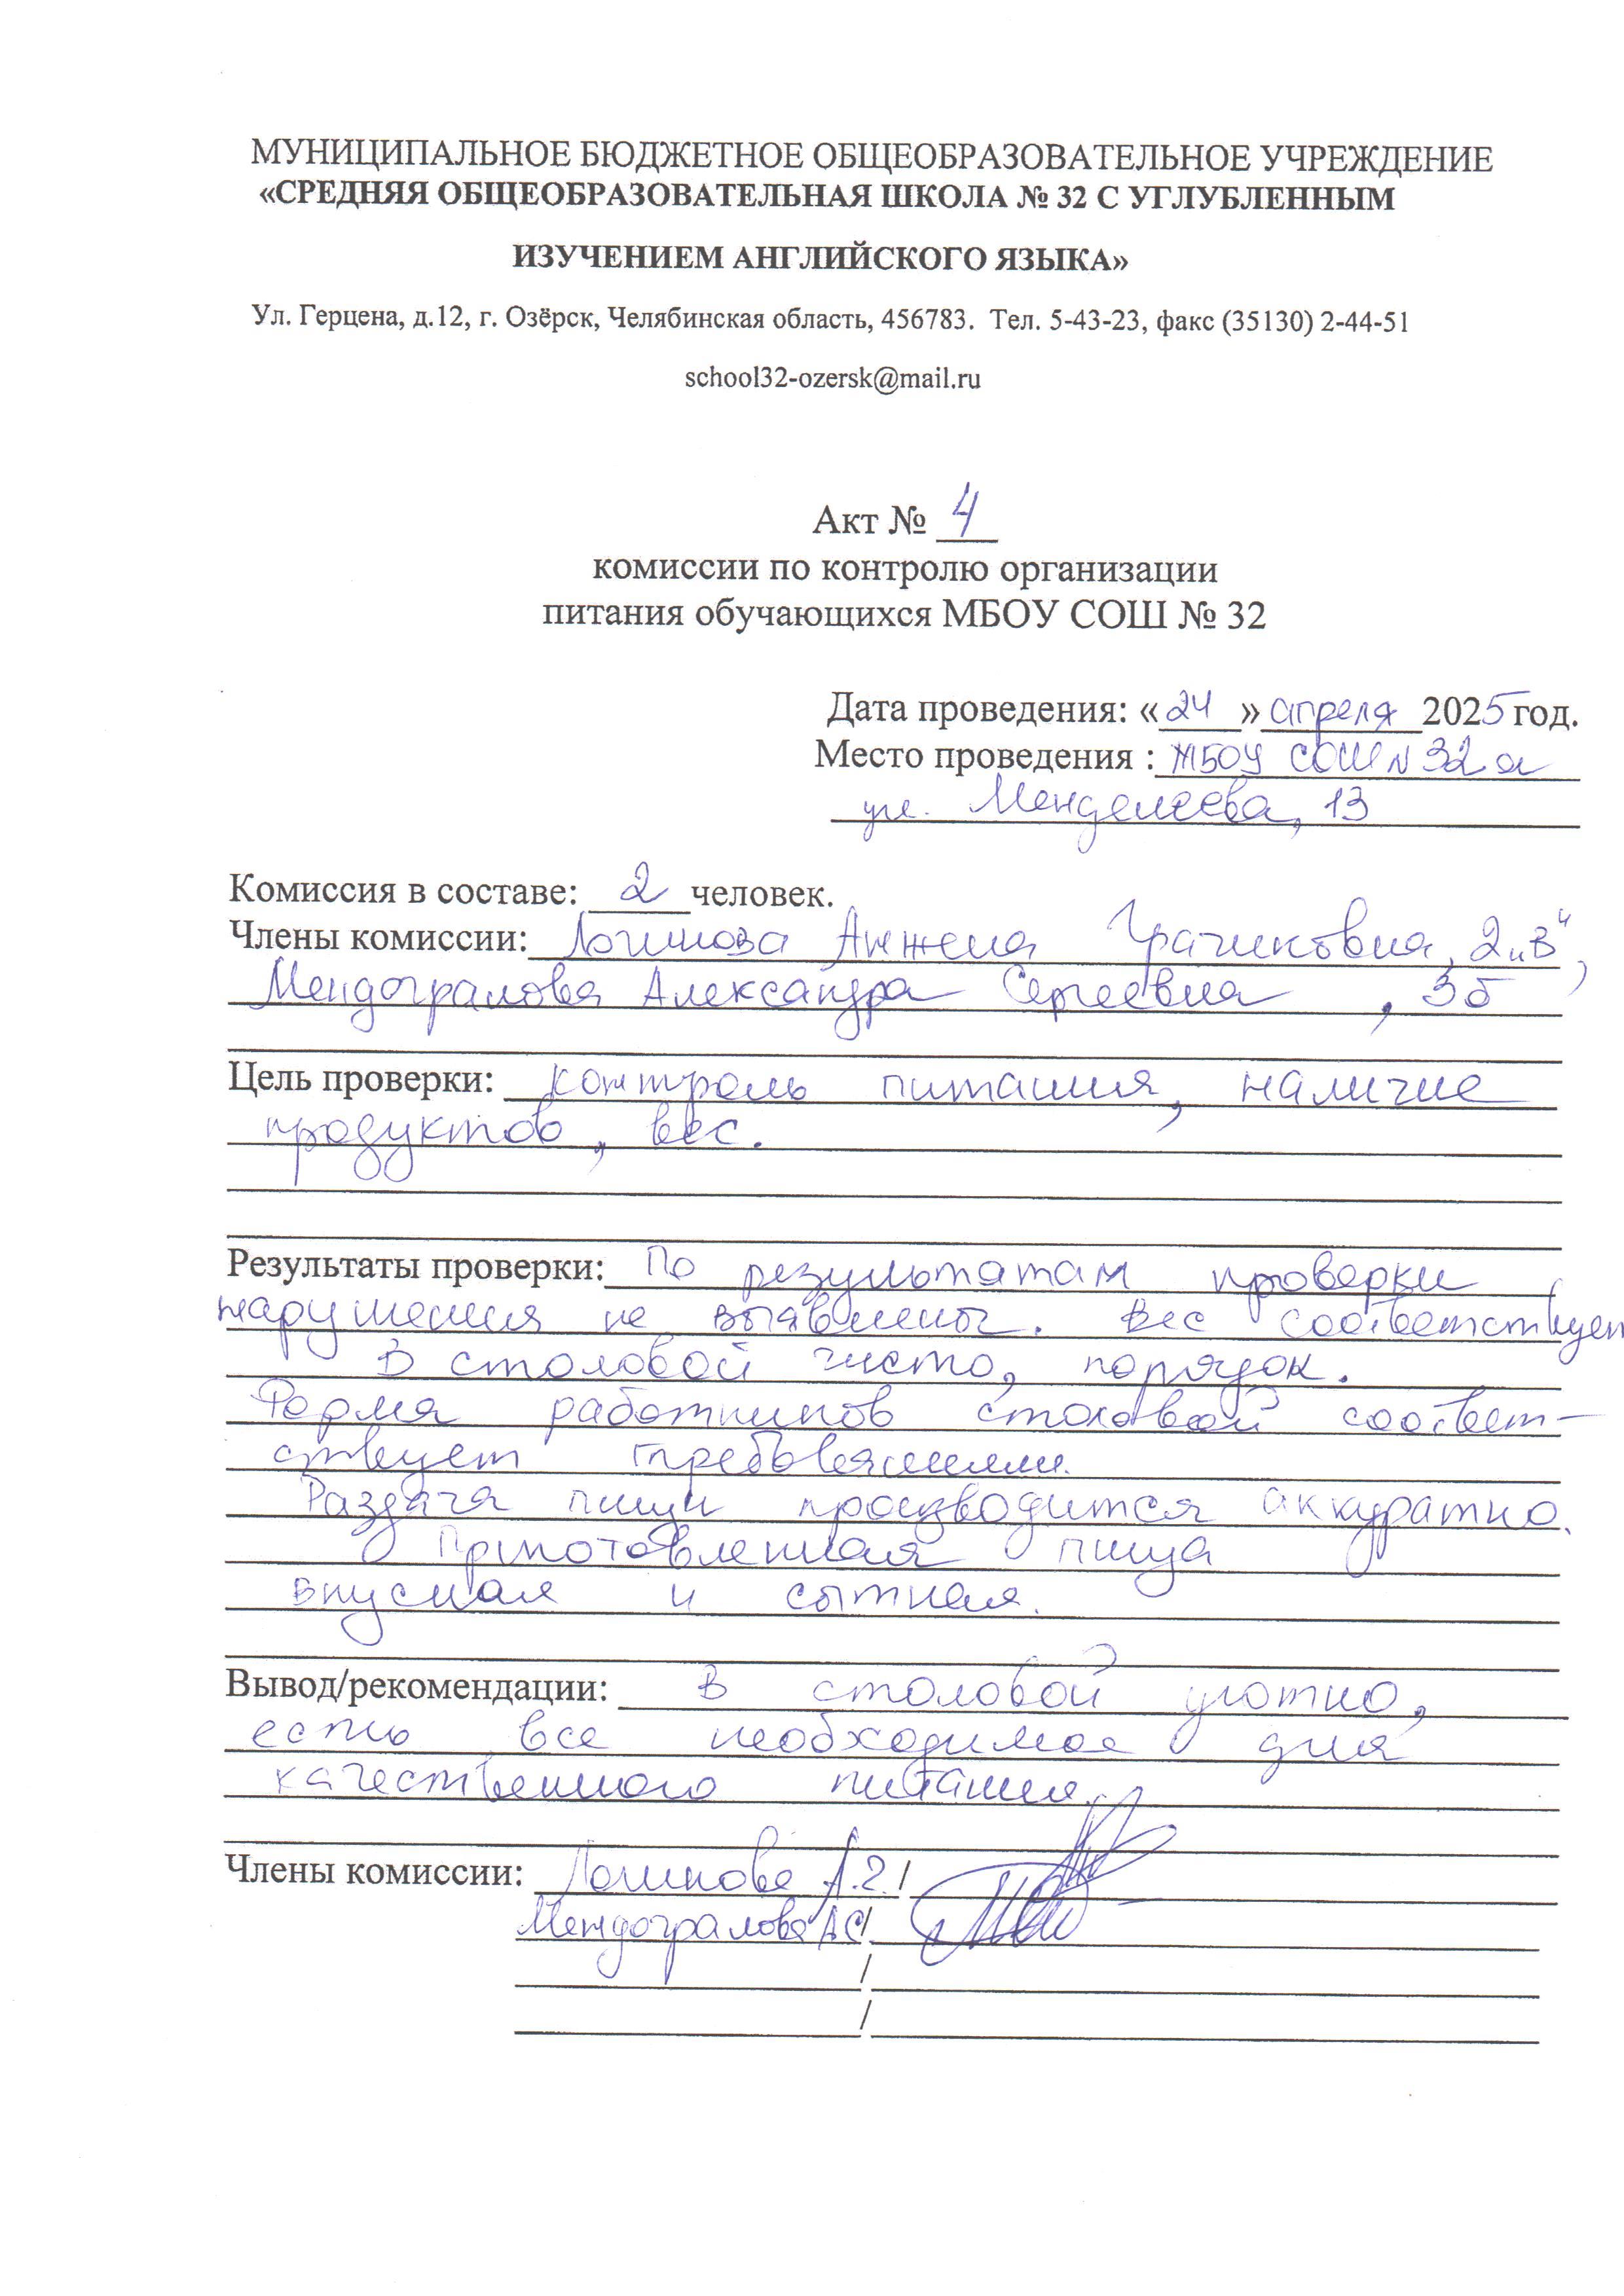 МУНИЦИПАЛЬНОЕ БЮДЖЕТНОЕ ОБЩЕОБРАЗОВАТЕЛЬНОЕ УЧРЕЖДЕНИЕ
«СРЕДНЯЯ ОБЩЕОБРАЗОВАТЕЛЬНАЯ ШКОЛА № 32 С УГЛУБЛЕННЫМ
ИЗУЧЕНИЕМ АНГЛИЙСКОГО ЯЗЫКА»
Ул. Герцена, д.12, г. Озёрск, Челябинская область, 456783. Тел. 5-43-23, факс (35130) 2-44-51
school32-ozersk@mail.ru
Акт № 4
комиссии по контролю организации
питания обучающихся МБОУ СОШ № 32
Дата проведения: «24» апреля 2025 год.
Место проведения : МБОУ СОШ N 32
ул. Менделеева, 13
Комиссия в составе: 2 человек.
Члены комиссии: Логинова Анжела Грачиковна, 2„В",
Мендогралова Александра Сергеевна, 3б
Цель проверки: контроль питания, наличие
продуктов, вес.
Результаты проверки: По результатам проверки
нарушения не выявлены. Вес соответствует
В столовой чисто, порядок.
Форма работников столовой соответ-
ствует требованиям.
Раздача пищи производится аккуратно.
Приготовленная пища
вкусная и сытная.
Вывод/рекомендации: В столовой уютно,
есть все необходимое для
качественного питания.
Члены комиссии: Логинова А.Г. /
Мендогралова АС/
/
/